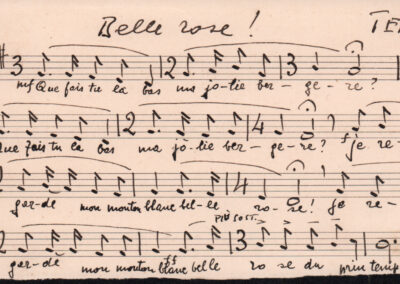 Belle rose! TE
3 2 3
mf Que fais tu la bas ma jo-lie ber-ge-re?
2 4
Que fais tu la bas ma jo-lie ber-ge-re? f je re-
2 4
garde mon mouton blanc bel-le ro-se! je re-
PIÙ SOST.
2 3
garde mon mouton blanc belle ro se du printemp